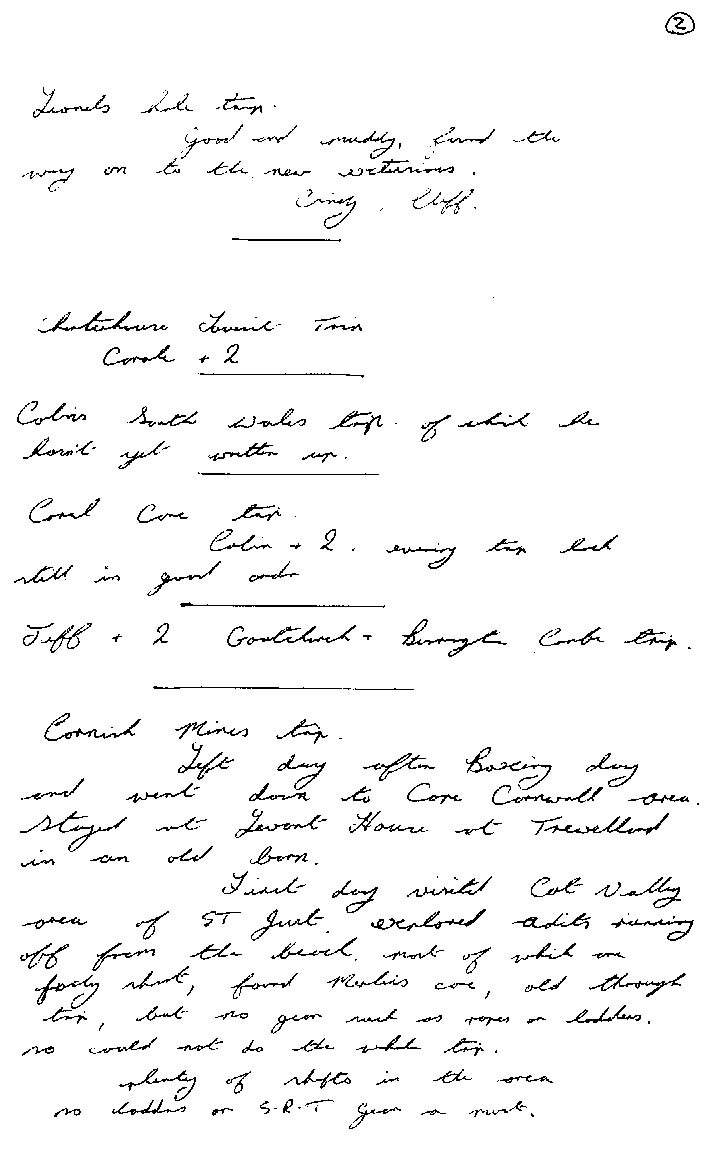 2
Lionels hole trip.
Good and muddy, found the
way on to the new extensions.
Cliff.
Charterhouse Trip
+ 2
Colins South Wales trip. of which he
hasn't yet written up.
Coral Cave trip.
Colin + 2. evening trip lock
still in good order
Jeff + 2 Goatchurch + Burrington Combe trip.
Cornish Mines trip.
Left day after Boxing day
and went down to Cornwall area.
Stayed at Levant House at Trewellard
in an old barn.
First day visited Cot Valley
area of ST Just. explored adits running
off from the beach. most of which are
fairly short, found Merlins cave, old through
trip, but no gear such as ropes or ladders.
so could not do the whole trip.
plenty of shafts in the area
so ladders or S.R.T gear a must.